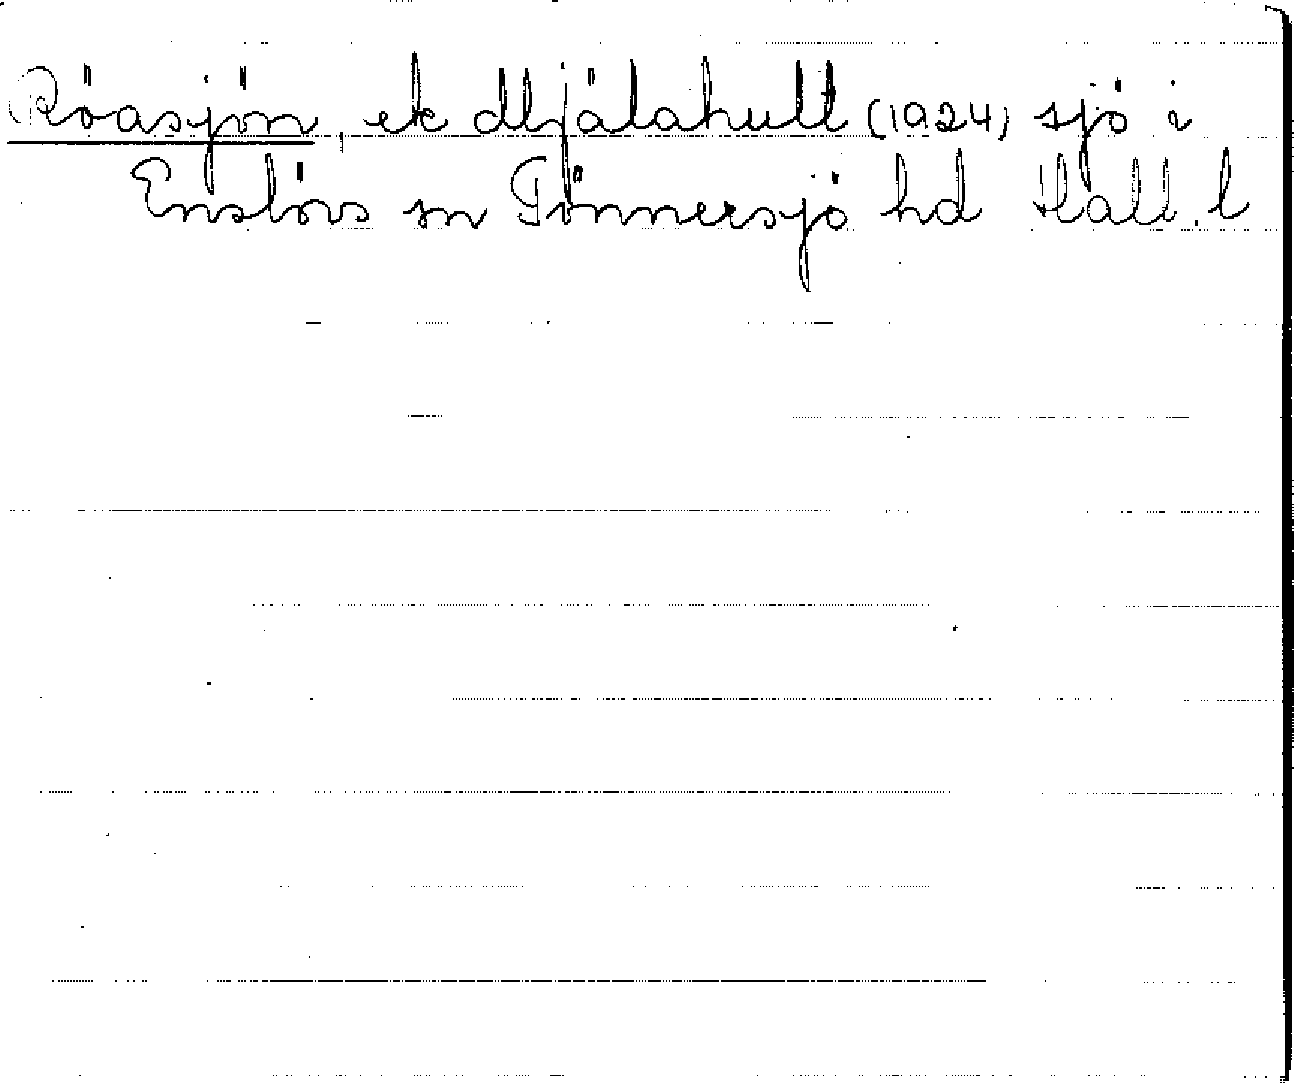 Röasjön, ek Mjälahult (1924) sjö i
Enslövs sn Tönnersjö hd Hall. l